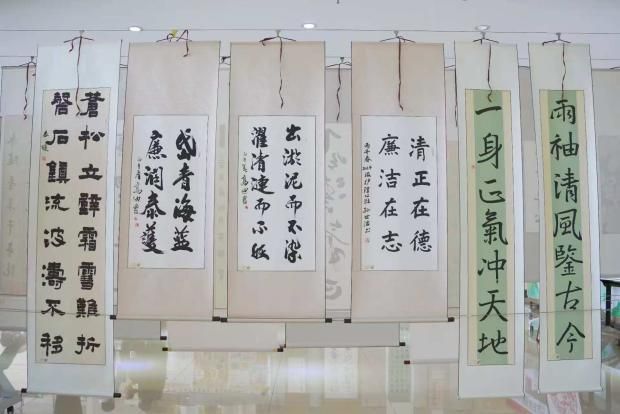 兩袖清風鑒古今
一身正氣冲天地
清正在德
廉洁在志
出淤泥而不染
濯清漣而不妖
岱青海蓝
廉潤泰
蒼松立壁霜雪難折
磐石鎮流波濤不移